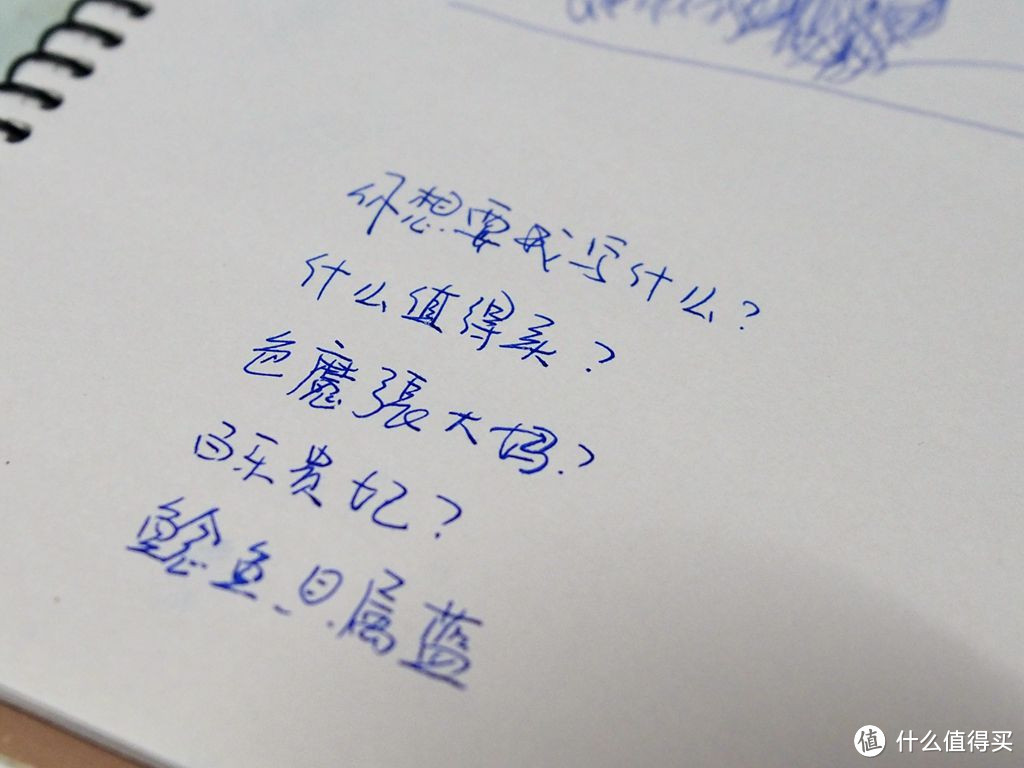 你想要我写什么?
什么值得买?
色魔張大妈?
白买贵妃?
鲶鱼_日.属蓝
值 什么值得买